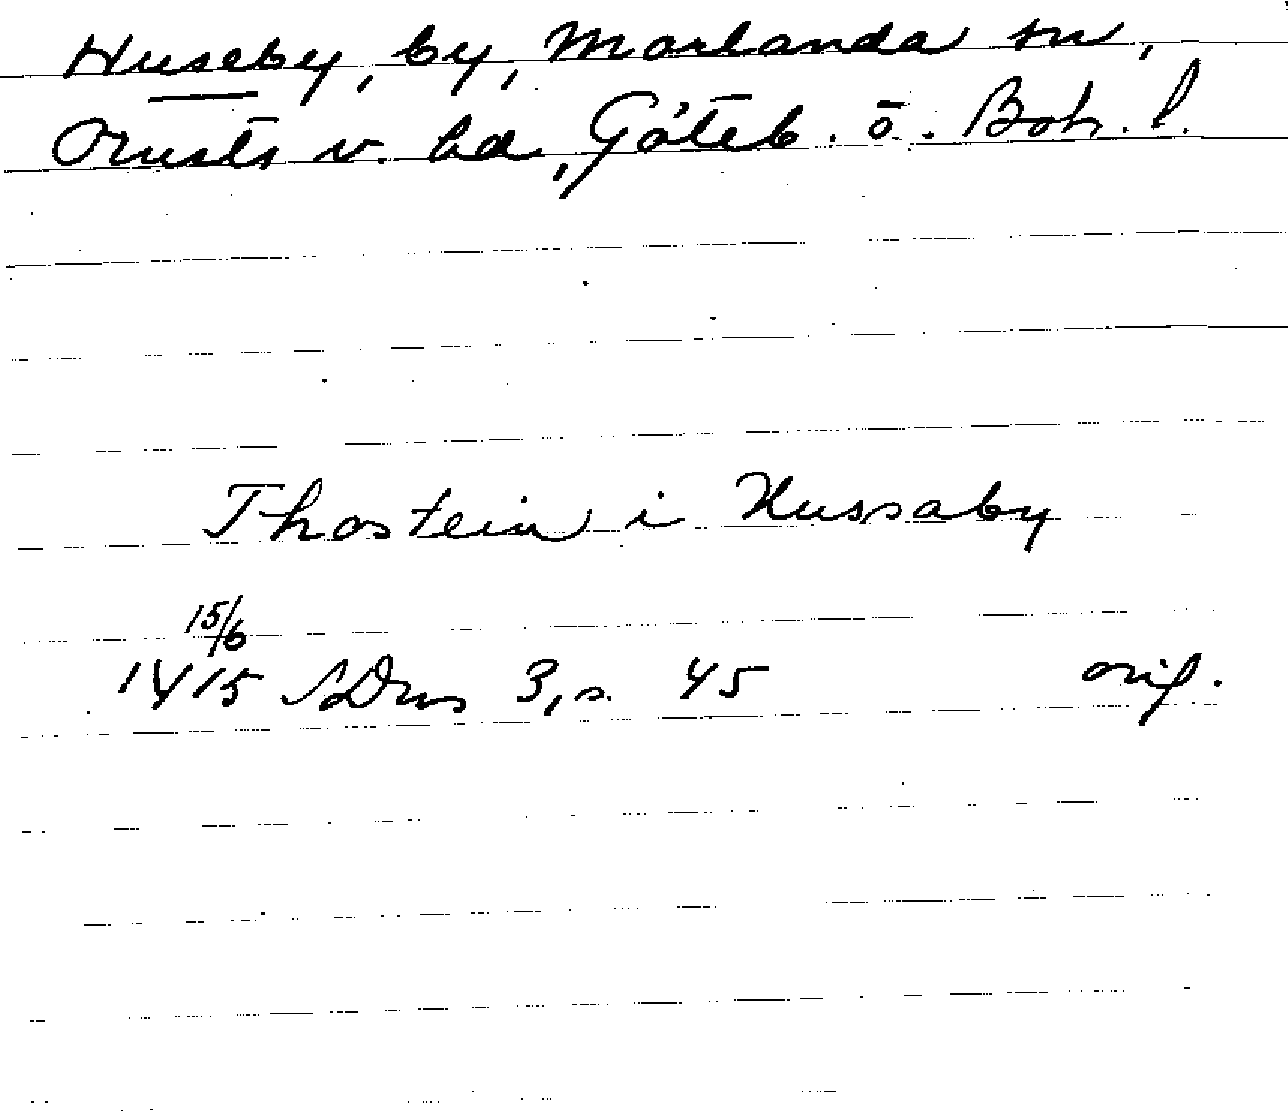 Huseby, by, Morlanda sn,
Orusts v. hd, Göteb. o. Boh. l.
Thostein i Hussaby
15/6
1415 SDns 3, s. 45 orig.